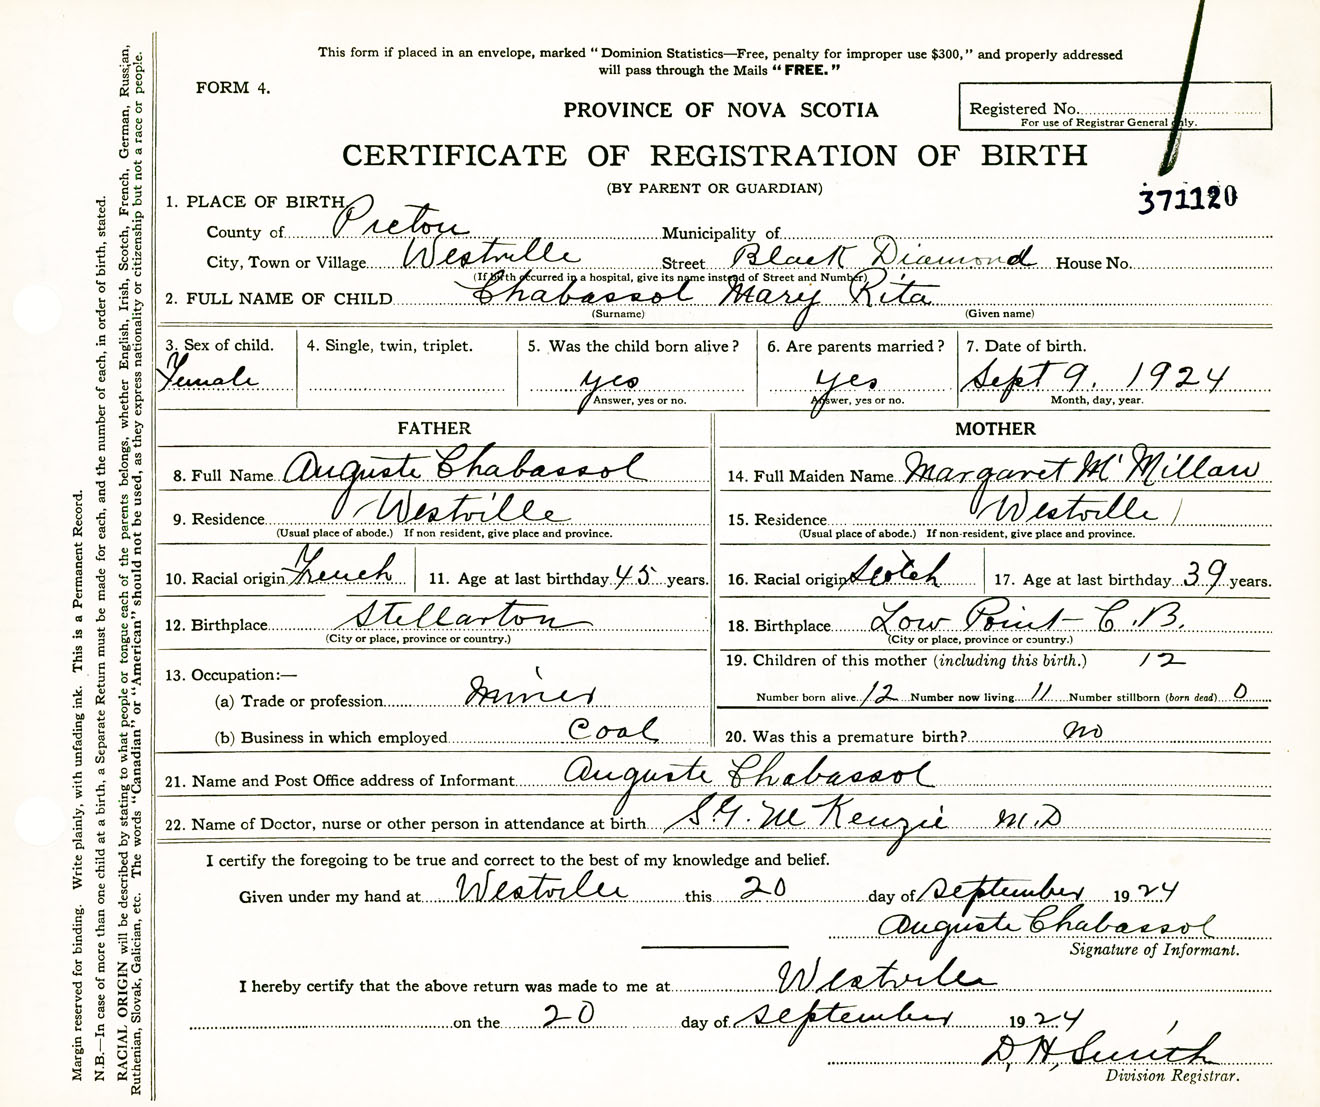 This form if placed in an envelope, marked "Dominion Statistics—Free, penalty for improper use $300," and properly addressed
will pass through the Mails "FREE."
FORM 4.
PROVINCE OF NOVA SCOTIA
Registered No.
For use of Registrar General only.
CERTIFICATE OF REGISTRATION OF BIRTH
(BY PARENT OR GUARDIAN)
371120
1. PLACE OF BIRTH
County of Pictou Municipality of
City, Town or Village Westville Street Black Diamond House No.
(If birth occurred in a hospital, give its name instead of Street and Number)
2. FULL NAME OF CHILD Chabassol Mary Rita
(Surname) (Given name)
3. Sex of child. 4. Single, twin, triplet. 5. Was the child born alive? 6. Are parents married? 7. Date of birth.
Female yes yes Sept 9. 1924
Answer, yes or no. Answer, yes or no. Month, day, year.
FATHER MOTHER
8. Full Name Auguste Chabassol 14. Full Maiden Name Margaret McMillan
9. Residence Westville 15. Residence Westville
(Usual place of abode.) If non resident, give place and province. (Usual place of abode.) If non-resident, give place and province.
10. Racial origin French 11. Age at last birthday 45 years. 16. Racial origin Scotch 17. Age at last birthday 39 years.
12. Birthplace Stellarton 18. Birthplace Low Point C.B.
(City or place, province or country.) (City or place, province or country.)
19. Children of this mother (including this birth.) 12
13. Occupation:—
(a) Trade or profession miner Number born alive 12 Number now living 11 Number stillborn (born dead) 0
(b) Business in which employed Coal 20. Was this a premature birth? no
21. Name and Post Office address of Informant Auguste Chabassol
22. Name of Doctor, nurse or other person in attendance at birth S.G. McKenzie M.D
I certify the foregoing to be true and correct to the best of my knowledge and belief.
Given under my hand at Westville this 20 day of september 1924
Auguste Chabassol
Signature of Informant.
I hereby certify that the above return was made to me at Westville
on the 20 day of september 1924
D, H, Smith
Division Registrar.
Margin reserved for binding. Write plainly, with unfading ink. This is a Permanent Record.
N.B.—In case of more than one child at a birth, a Separate Return must be made for each, and the number of each, in order of birth, stated.
RACIAL ORIGIN will be described by stating to what people or tongue each of the parents belongs, whether English, Irish, Scotch, French, German, Russian,
Ruthenian, Slovak, Galician, etc. The words "Canadian" or "American" should not be used, as they express nationality or citizenship but not a race or people.